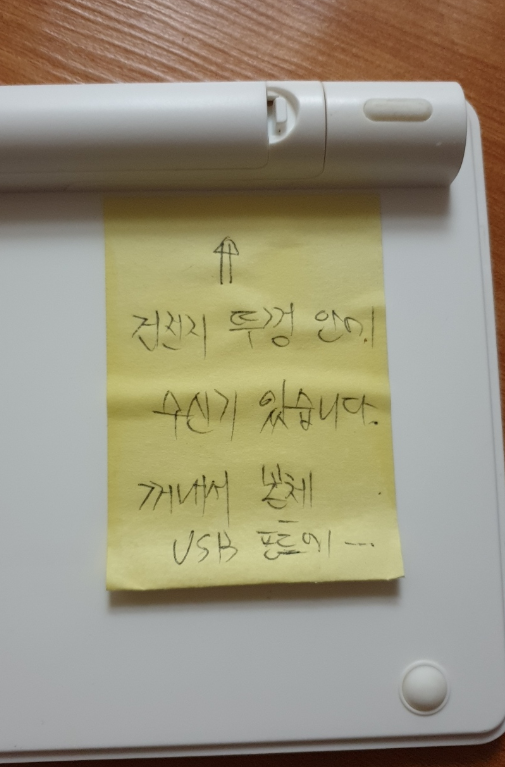 건전지 뚜껑 안에
수신기 있습니다.
꺼내서 본체
USB 포트에 ...